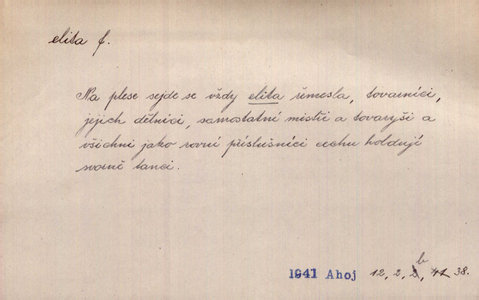 elita f.
Na plese sejde se vždy elita řemesla, továrníci,
jejich dělníci, samostatní mistři a tovaryši a
všichni jako rovní příslušníci cechu holdují
svorně tanci.
1941 Ahoj 12, 2, b, 38.